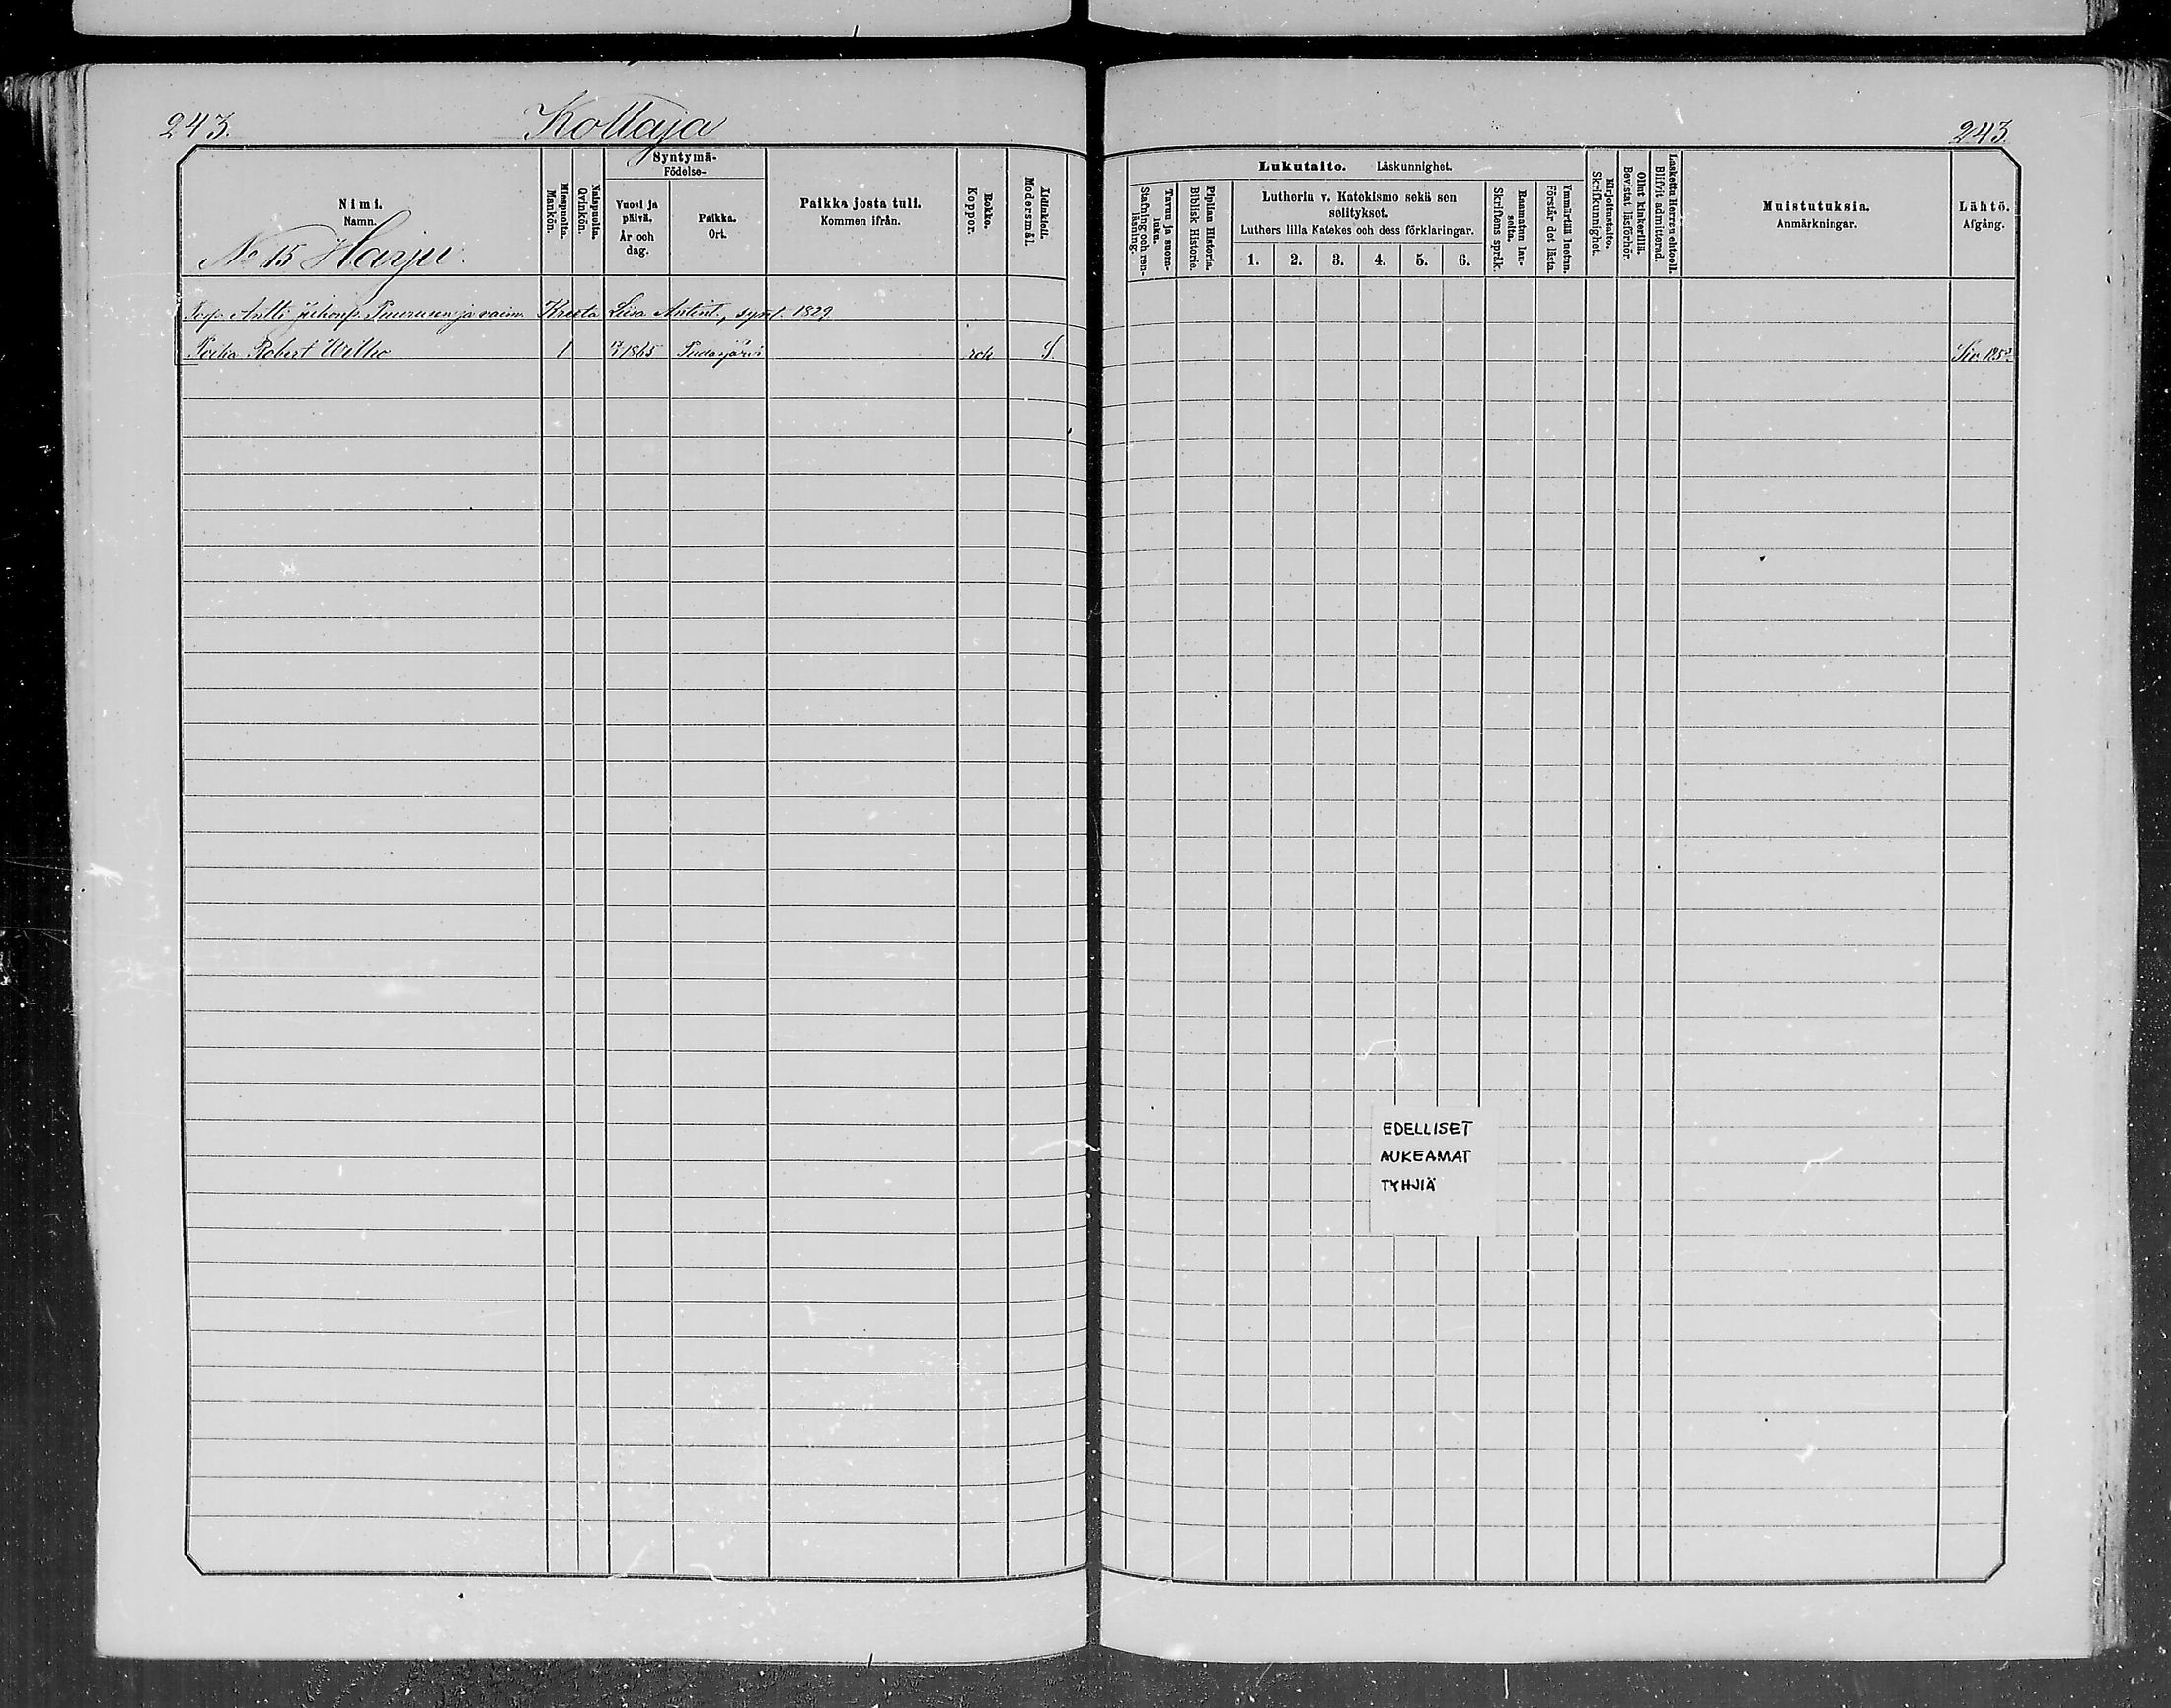 243.
Kollaja
243.
Nimi.
Namn.
No 15 Harju.
Miespuolia.
Mankön.
Naispuolia.
Qvinkön.
Syntymä-
Födelse-
Vuosi ja
päivä.
År och
dag.
Paikka.
Ort.
Paikka josta tuli.
Kommen ifrån.
Rokko.
Koppor.
Äidinkieli.
Modersmål.
Lukutaito. Läskunnighet.
Tavuu ja suora-
luku.
Stafning och ren-
läsning.
Piplian Historia.
Biblisk Historie.
Lutherin v. Katekismo sekä sen
selitykset.
Luthers lilla Katekes och dess förklaringar.
1. 2. 3. 4. 5. 6.
Raamatun lau-
seita.
Skriftens språk.
Ymmärtää luetun.
Förstår det lästa.
Kirjoitustaito.
Skrifkunnighet.
Ollut kinkerillä.
Bevistat läsförhör.
Laskettu Herran ehtooll.
Blifvit admitterad.
Muistutuksia.
Anmärkningar.
Lähtö.
Afgång.
Antti Juhonp. Puurunen ja vaim. Kreeta Liisa Antint., synt. 1829
Poika Robert Wilho 1 1865 Pudasjärvi rok S.
Siv. 125
EDELLISET
AUKEAMAT
TYHJIÄ